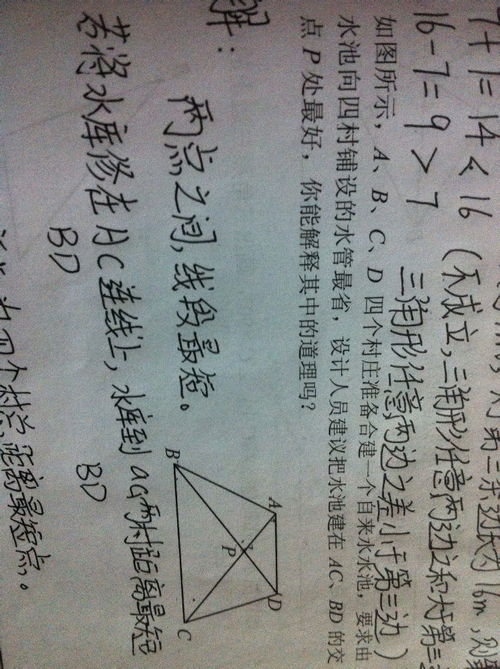 第三条边长为16m,则
7+7=14<16 (不成立,三角形任意两边之和大于第三
16-7=9>7 三角形任意两边之差小于第三边)
如图所示,A、B、C、D 四个村庄准备合建一个自来水水池,要求由
水池向四村铺设的水管最省,设计人员建议把水池建在 AC、BD 的交
点 P 处最好,你能解释其中的道理吗?
解:
A D
P
B C
两点之间,线段最短。
若将水库修在AC连线上,水库到ac两村距离最短
BD BD
为四个村总距离最短点。